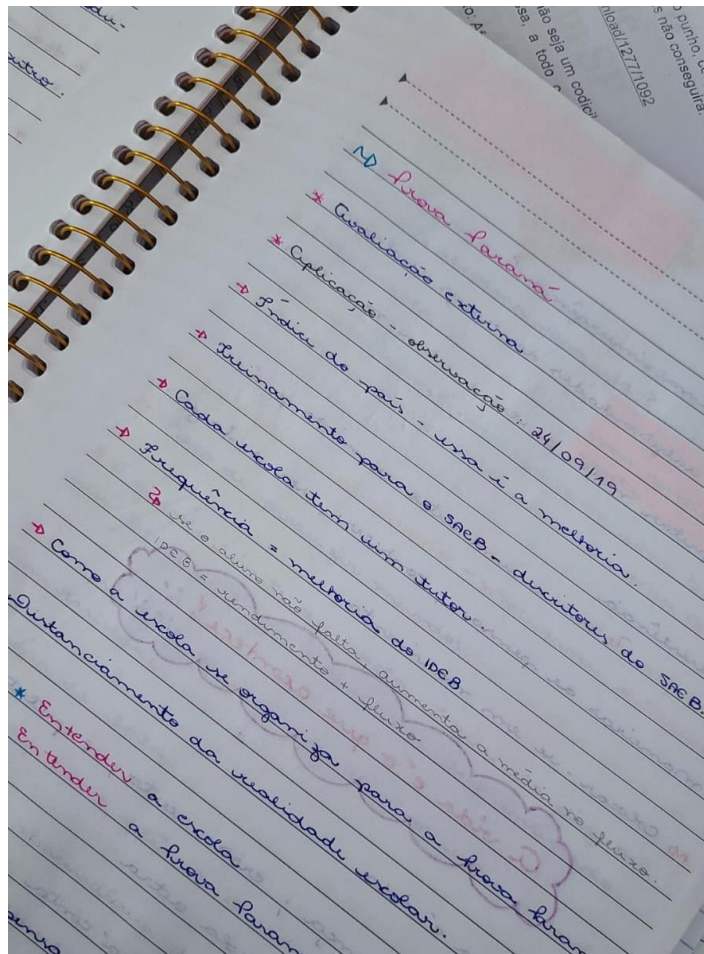 du-
outro.
o punho, 
s não conseguirá.
nload/1277/1092
ão seja um codicil
sa, a todo
Prova Paraná
* Avaliação externa
* Aplicação - observação: 24/09/19
→ Índice do país - essa é a melhoria.
→ Treinamento para o SAEB - descritores do SAEB.
→ Cada escola tem um tutor
→ Frequência = melhoria do IDEB
se o aluno não falta, aumenta a média no fluxo.
IDEB = rendimento + fluxo
→ Como a escola se organiza para a Prova Paran
Distanciamento da realidade escolar.
* Entender a escola
Entender a Prova Paran
penso